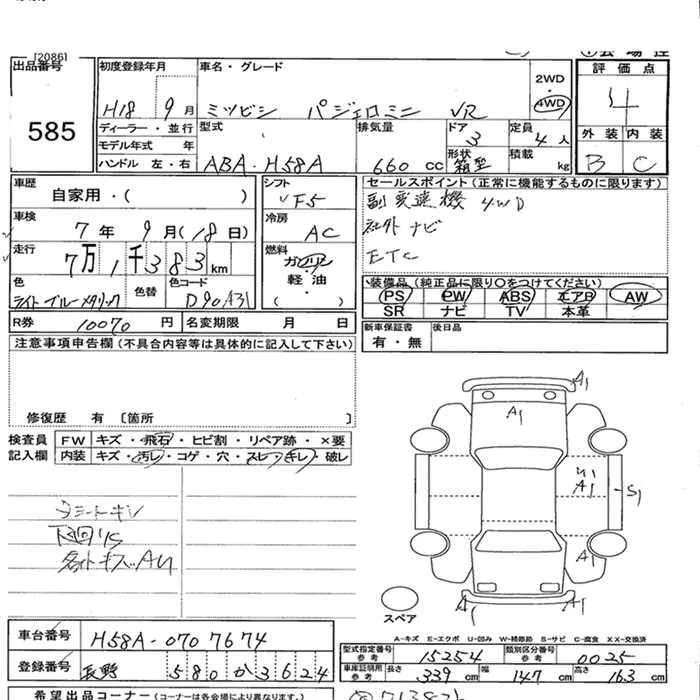 [2086]
出品番号
585
初度登録年月
H18 9月
ディーラー・並行
モデル年式 年
ハンドル 左・右
車名・グレード
ミツビシ パジェロミニ VR
2WD
4WD
型式
ABA-H58A
排気量
660cc
ドア
3
形状
箱型
定員
4人
積載
kg
評価点
4
外装 内装
B C
車歴
自家用・( )
車検
7年9月(18日)
走行
7万1千383km
色
ライトブルーメタリック
色替
色コード
D90A31
R券 10070円
名変期限 月 日
シフト
F5
冷房
AC
燃料
ガソリン
軽油
( )
セールスポイント(正常に機能するものに限ります)
副変速機 4WD
社外ナビ
ETC
装備品(純正品に限り○をつけてください)
PS PW ABS エアB AW
SR ナビ TV 本革
新車保証書
有・無
後日品
注意事項申告欄(不具合内容等は具体的に記入して下さい)
修復歴 有 [箇所 ]
検査員
記入欄
FW キズ・飛石・ヒビ割・リペア跡・×要
内装 キズ・汚レ・コゲ・穴・スレ・キレ・破レ
下回りS
A1
A1
A1
S1
A1
A1
A1
スペア
A-キズ E-エクボ U-凹み W-補修跡 S-サビ C-腐食 XX-交換済
車台番号 H58A-0707674
登録番号 長野 580か3624
型式指定番号
参考
15254
類別区分番号
参考
0025
車庫証明用
参考
長さ 339cm 幅 147cm 高さ 163cm
希望出品コーナー(コーナーは各会場により異なります。)